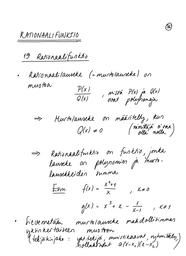 RATIONAALIFUNKTIO
1) Rationaalifunktio
• Rationaalilauseke (= murtolauseke) on
muotoa
P(x)/Q(x) , missä P(x) ja Q(x)
ovat polynomeja
⇒ Murtolauseke on määritelty, kun
Q(x) ≠ 0 (nimittäjä ei saa
olla nolla)
⇒ Rationaalifunktio on funktio, jonka
lauseke on polynomien ja murto-
lausekkeiden summa
Esim f(x) = , x ≠ 0
g(x) = , x ≠ 1
• Sievennetään murtolauseke mahdollisimman
yksinkertaiseen muotoon